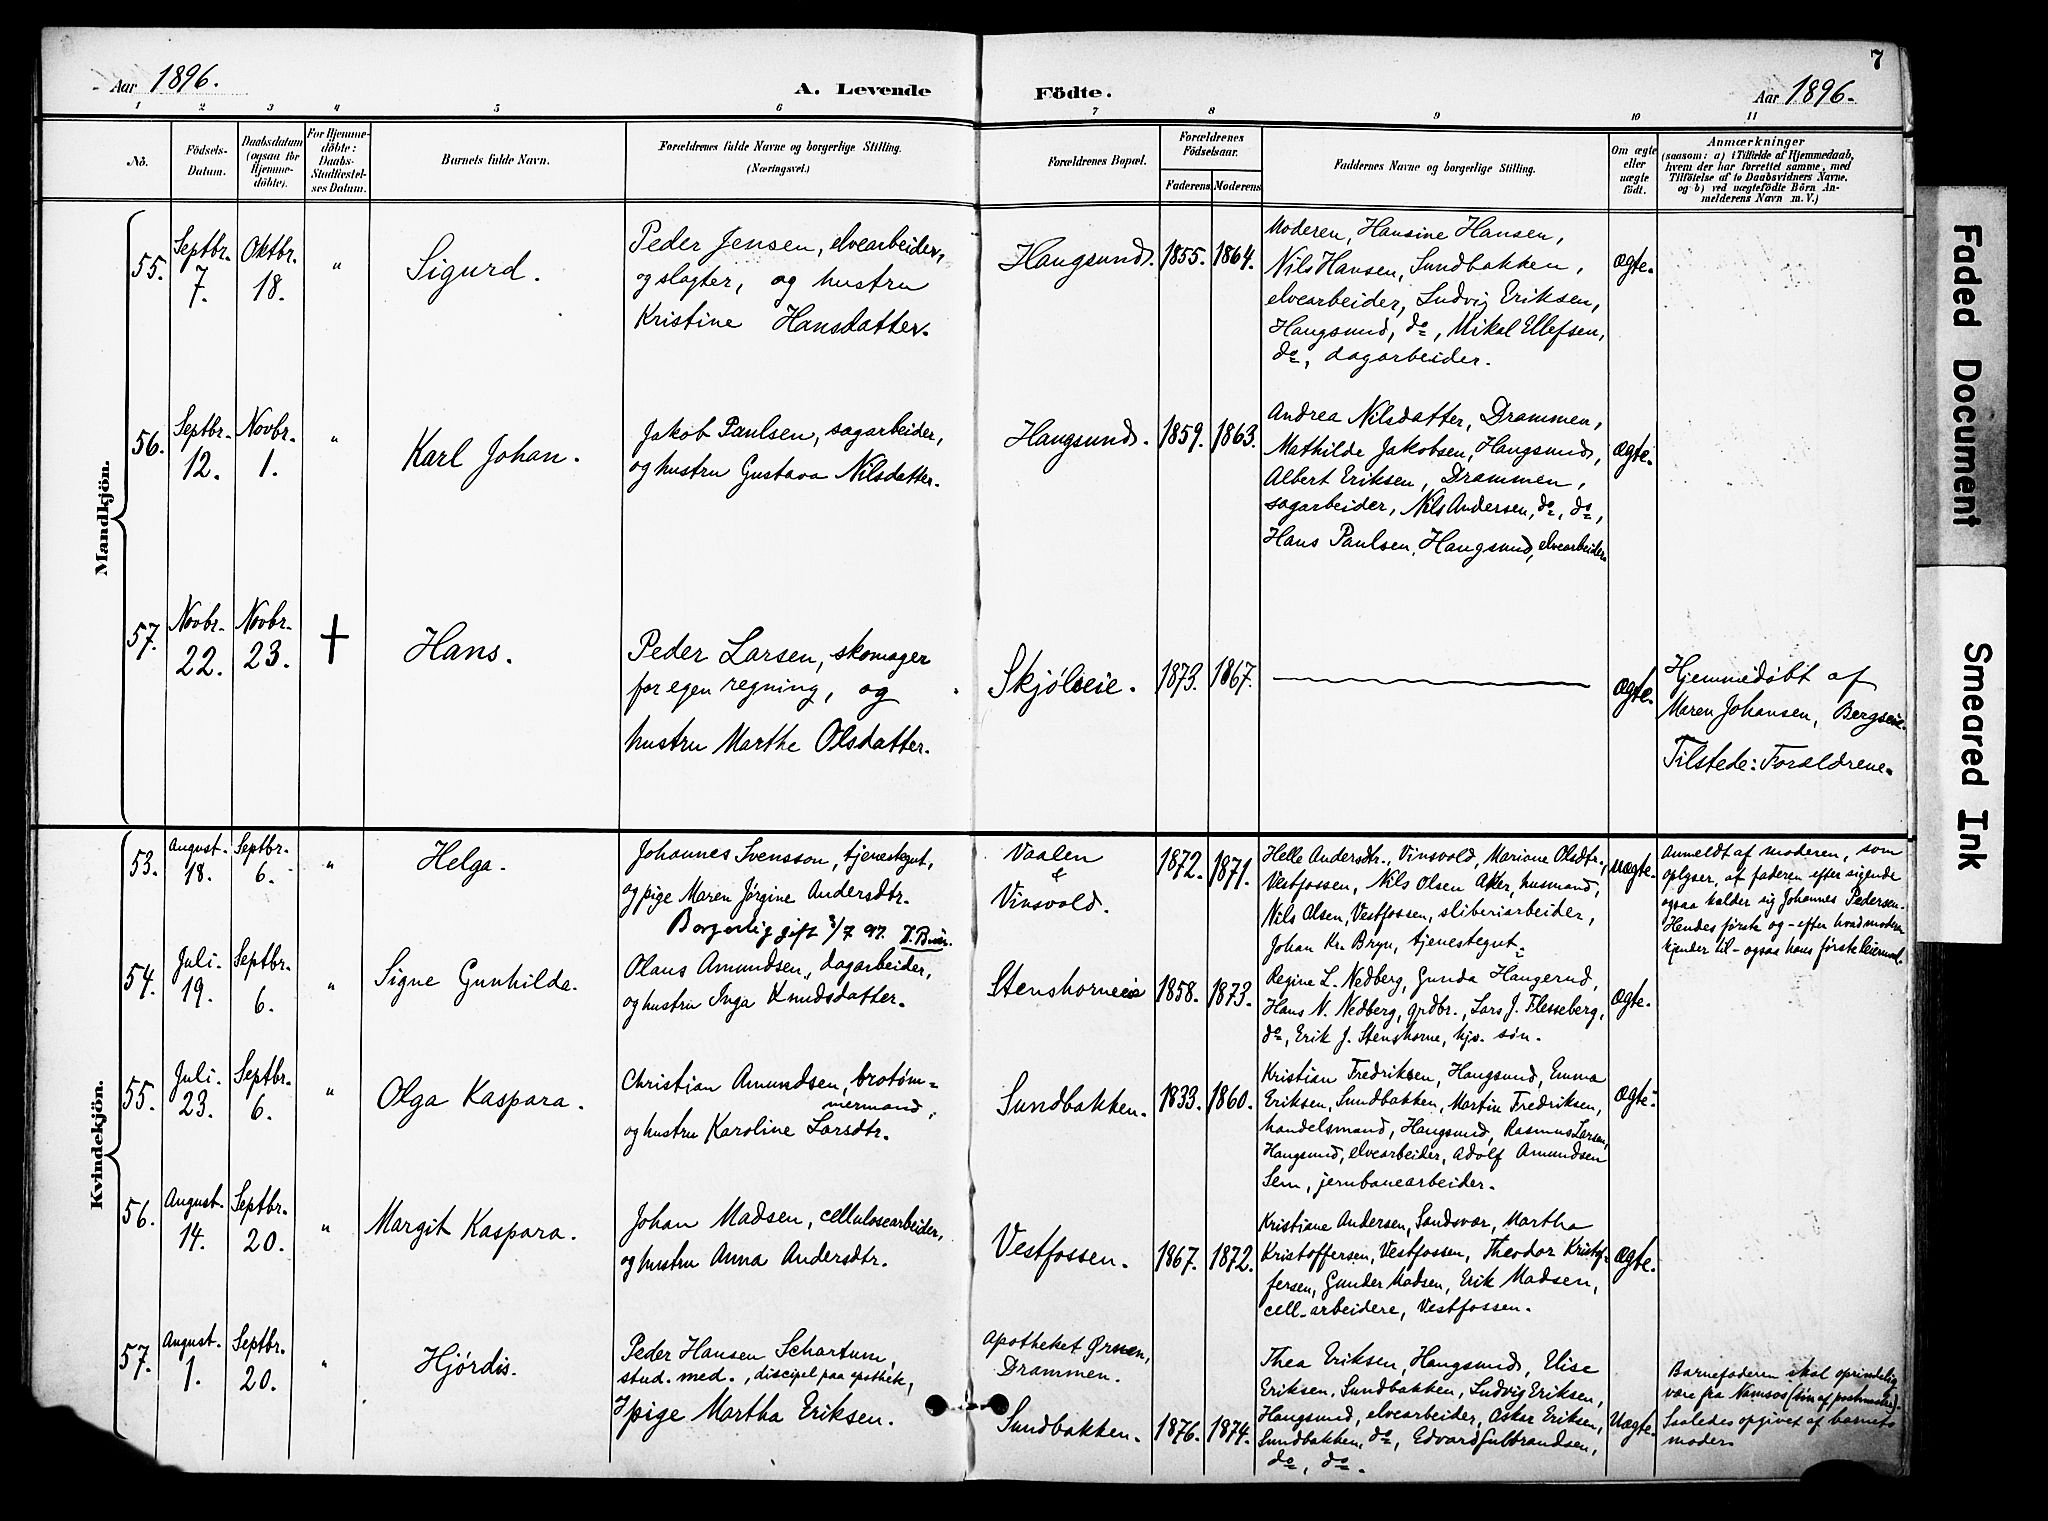 7
Aar 1896.
A. Levende Födte.
Aar 1896.
1 2 3 4 5 6 7 8 9 10 11
No.
Födsels-
Datum.
Daabsdatum
(ogsaa for
Hjemme-
döbte).
For Hjemme-
döbte:
Daabs-
Stadfæstel-
ses Datum.
Barnets fulde Navn.
Forældrenes fulde Navne og borgerlige Stilling.
(Næringsvei.)
Forældrenes Bopæl.
Forældrenes
Födselsaar.
Faderens. Moderens.
Faddernes Navne og borgerlige Stilling.
Om ægte
eller
uægte
födt.
Anmærkninger
(saasom: a) i Tilfælde af Hjemmedaab,
hvem der har forrettet samme, med
Tilföielse af to Daabsvidners Navne.
og b) ved uægtefödte Börn An-
melderens Navn m. V.)
Mandkjön.
55.
Septbr.
7.
Oktbr.
18.
"
Sigurd.
Peder Jensen, elvearbeider,
og slagter, og hustru
Kristine Hansdatter.
Haugsund.
1855. 1864.
Moderen, Hansine Hansen,
Nils Hansen, Sundbakken,
elvearbeider, Ludvig Eriksen,
Haugsund, do, Mikal Ellefsen,
do, dagarbeider.
Ægte.
56.
Septbr.
12.
Novbr.
1.
"
Karl Johan.
Jakob Paulsen, sagarbeider,
og hustru Gustava Nilsdatter.
Haugsund.
1859. 1863.
Andrea Nilsdatter, Drammen,
Mathilde Jakobsen, Haugsund,
Albert Eriksen, Drammen,
sagarbeider, Nils Andersen, do, do,
Hans Paulsen, Haugsund, elvearbeider
Ægte.
57.
Novbr.
22.
Novbr.
23.
†
Hans.
Peder Larsen, skomager
for egen regning, og
hustru Marthe Olsdatter.
Skjölveie.
1873. 1867.
Ægte.
Hjemmedøbt af
Maren Johansen, Bergseie.
Tilstede: Forældrene.
Kvindekjön.
53.
August.
18.
Septbr.
6.
"
Helga.
Johannes Svensson, tjenestegut,
og pige Maren Jørgine Andersdtr.
Borgerlig gift 3/7 97.
Vaalen
&
Vinsvold.
1872. 1871.
Helle Andersdtr., Vinsvold, Mariane Olsdtr.,
Vestfossen, Nils Olsen Aker, husmand,
Nils Olsen, Vestfossen, sliberiarbeider,
Johan Kr. Bryn, tjenestegut.
Uægte.
Anmeldt af moderen, som
oplyser, at faderen efter sigende
ogsaa kalder sig Johannes Pedersen.
Hendes første og – efter hvad moderen
kjender til – ogsaa hans første leiermaal.
54.
Juli.
19.
Septbr.
6.
"
Signe Gunhilda.
Olaus Amundsen, dagarbeider,
og hustru Inga Knudsdatter.
Stenshorneie
1858. 1873.
Regine L. Nedberg, Gunda Haugerud,
Hans N. Nedberg, grdbr., Lars J. Flesseberg,
do, Erik J. Stenshorne, hjv. søn.
Ægte.
55.
Juli.
23.
Septbr.
6.
"
Olga Kaspara.
Christian Amundsen, brotøm-
mermand,
og hustru Karoline Larsdtr.
Sundbakken.
1833. 1860.
Kristian Fredriksen, Haugsund, Emma
Eriksen, Sundbakken, Martin Fredriksen,
handelsmand, Haugsund, Rasmus Larsen,
Haugsund, elvearbeider, Adolf Amundsen
Sem, jernbanearbeider.
Ægte.
56.
August.
14.
Septbr.
20.
"
Margit Kaspara.
Johan Madsen, cellulosearbeider,
og hustru Anna Andersdtr.
Vestfossen.
1867. 1872.
Kristiane Andersen, Sandsvær, Martha
Kristoffersen, Vestfossen, Theodor Kristof-
fersen, Gunder Madsen, Erik Madsen,
cell-arbeidere, Vestfossen.
Ægte.
57.
August.
1.
Septbr.
20.
"
Hjørdis.
Peder Hansen Schartum,
stud. med., discipel paa apothek,
pige Martha Eriksen.
Apotheket Ørnen,
Drammen.
Sundbakken.
1876. 1874.
Thea Eriksen, Haugsund, Elise
Eriksen, Sundbakken, Ludvig Eriksen,
Haugsund, elvearbeider, Oskar Eriksen,
Sundbakken, do, Edvard Gulbrandsen,
do, do.
Uægte.
Barnefaderen skal oprindelig
være fra Namsos (søn af postmester).
Saaledes opgivet af barnets
moder.
Faded Document
Smeared Ink